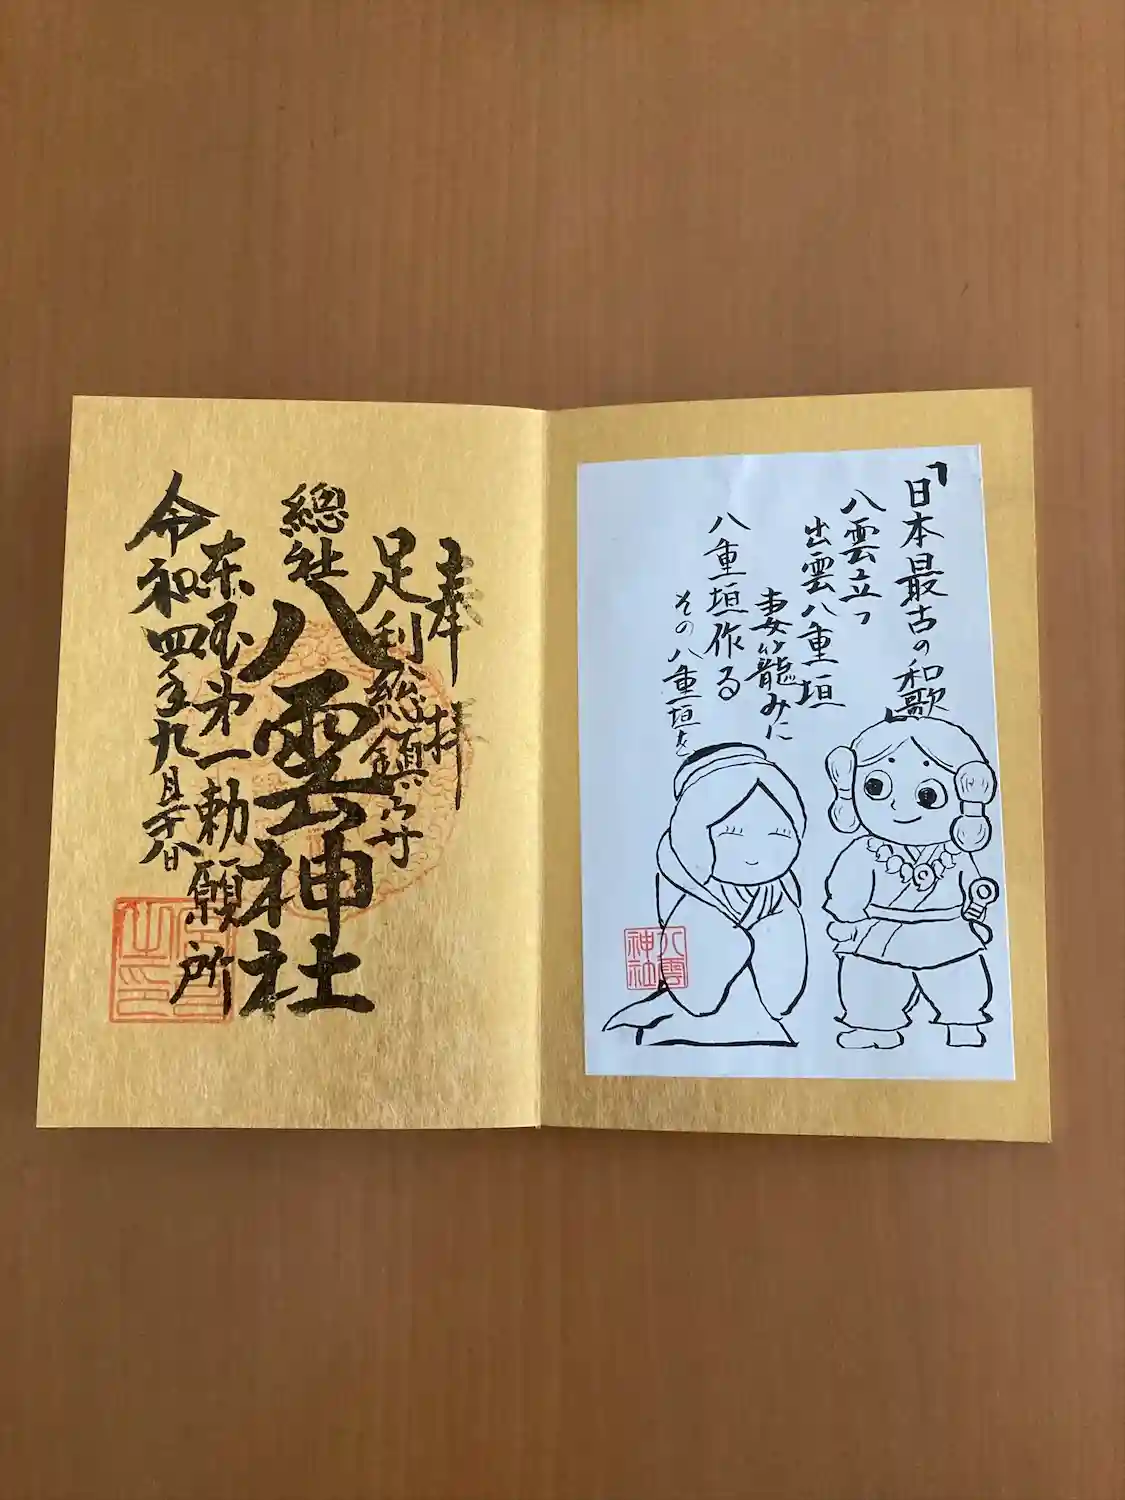 「日本最古の和歌」
八雲立つ
出雲八重垣
妻籠みに
八重垣作る
その八重垣を
八雲
神社
奉拝
足利総鎮守
總社
八雲神社
東国第一勅願所
令和四年九月